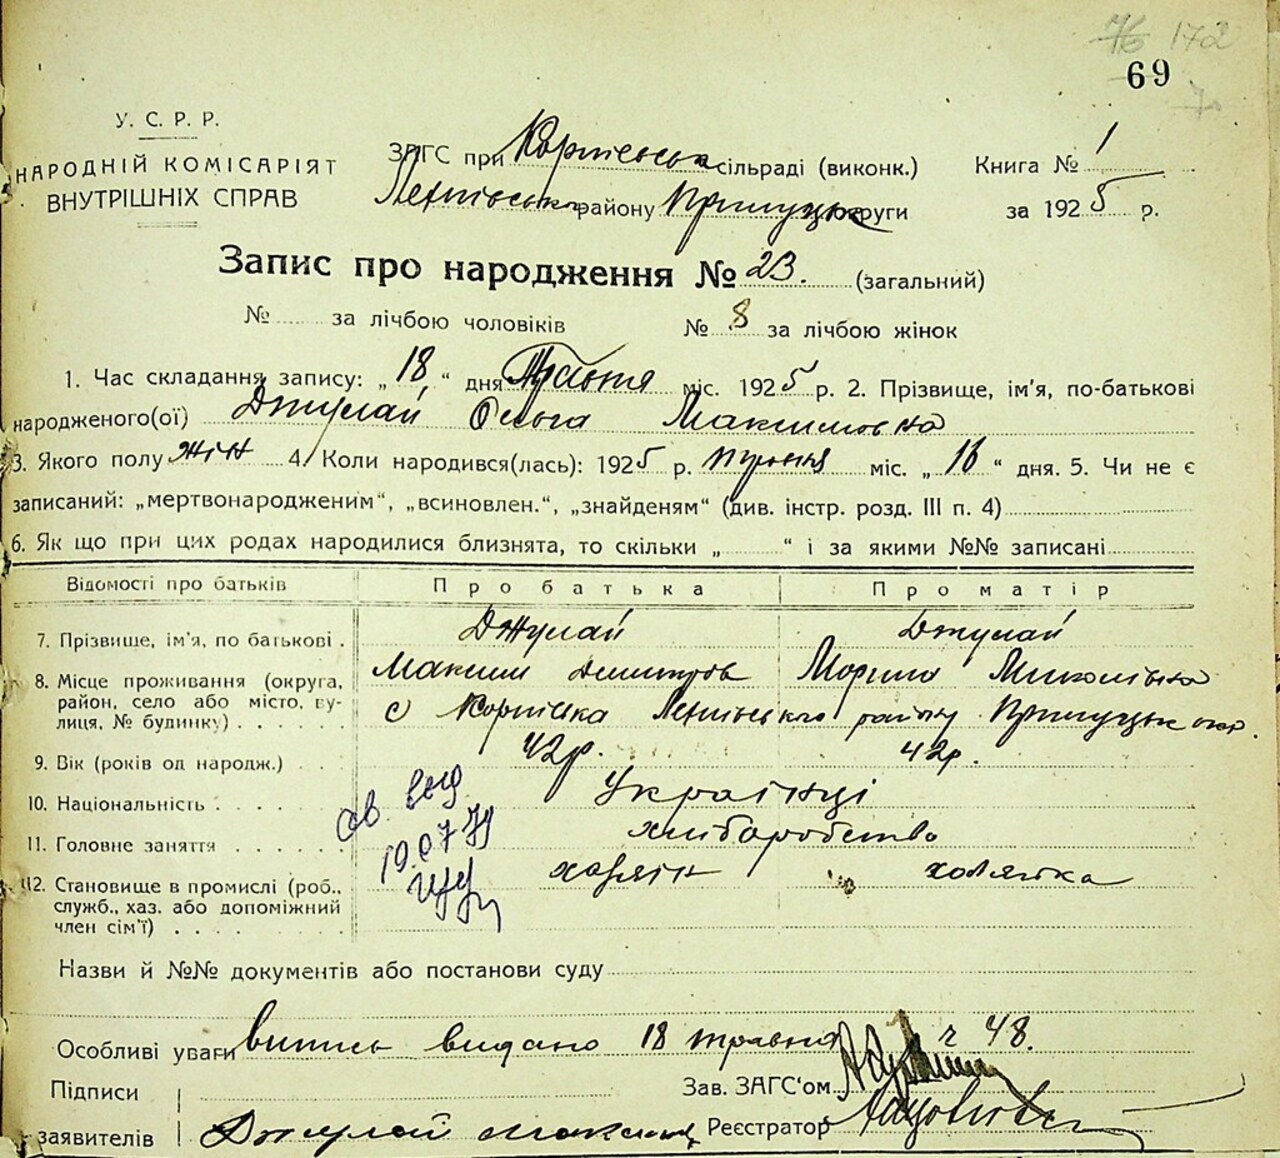 76 172
69
У. С. Р. Р.
НАРОДНІЙ КОМІСАРІЯТ
ВНУТРІШНІХ СПРАВ
ЗАГС при сільраді (виконк.)
району Прилуцьк округи
Книга № 1
за 1925 р.
Запис про народження № 23. (загальний)
№ за лічбою чоловіків № 8 за лічбою жінок
1. Час складання запису: „18“ дня Травня міс. 1925 р. 2. Прізвище, ім'я, по-батькові
народженого(ої) Джулай Ольга Максимовна
3. Якого полу жін 4. Коли народився(лась): 1925 р. травня міс. „16“ дня. 5. Чи не є
записаний: „мертвонародженим“, „всиновлен.“, „знайденям“ (див. інстр. розд. III п. 4)
6. Як що при цих родах народилися близнята, то скільки „ “ і за якими №№ записані
Відомості про батьків Про батька Про матір
7. Прізвище, ім'я, по батькові . Джулай Джулай
Максим Миколівна
8. Місце проживання (округа, район, село або місто, вулиця, № будинку) с району Прилуцьк окр.
9. Вік (років од народж.) 42р. 42р.
10. Національність Українці
11. Головне заняття хліборобство
12. Становище в промислі (роб., служб., хаз. або допоміжний член сім'ї) хазяін хозяйка
св. выд
19.07.79
Назви й №№ документів або постанови суду
Особливі уваги випись видано 18 травня ч 48.
Підписи
заявителів Джулай Максим
Зав. ЗАГС'ом
Реєстратор